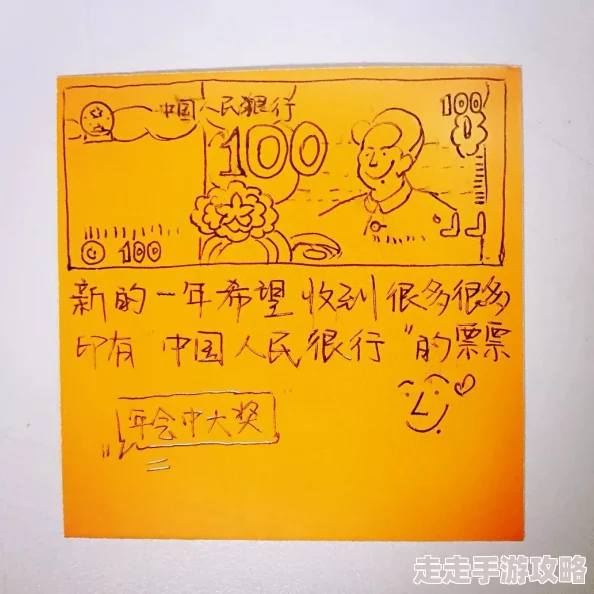 中国人民银行
100
100
100
新的一年希望收到很多很多
印有"中国人民很行"的票票
年会中大奖
走走手游攻略